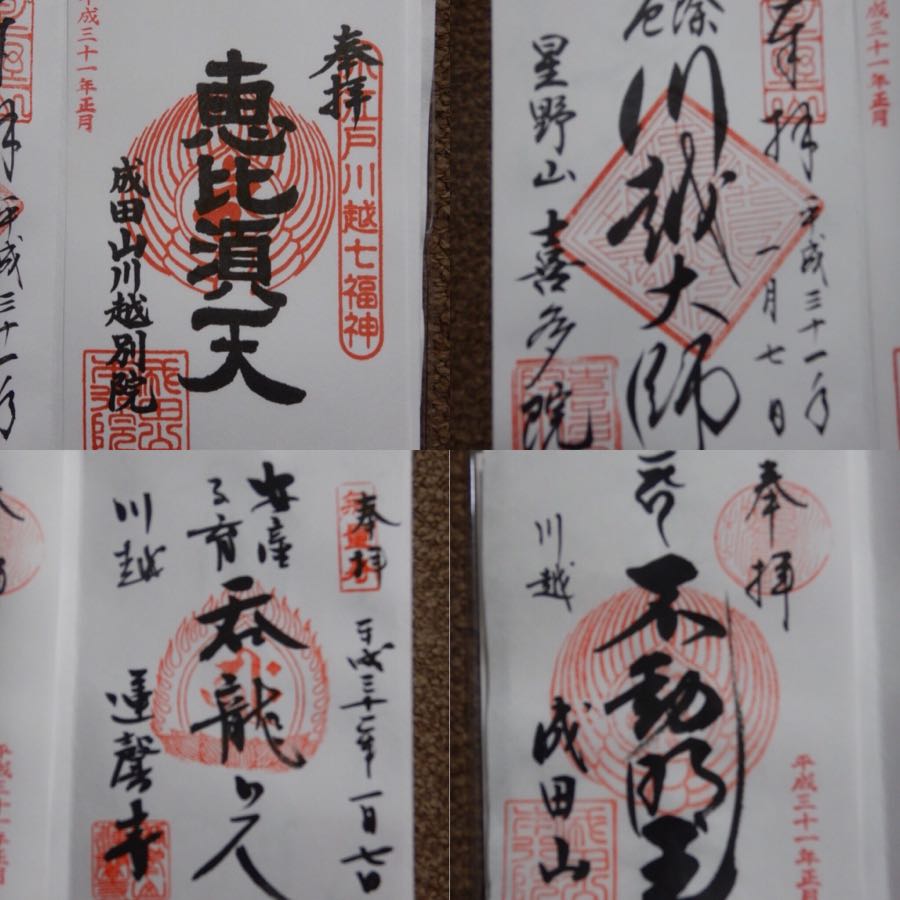 奉拝
小江戸川越七福神
恵比須天
成田山川越別院
平成三十一年正月
奉拝
平成三十一年
一月七日
厄除
川越大師
星野山
喜多院
平成三十一年正月
奉拝
平成三十一年一月七日
安産
子育
呑龍上人
川越
蓮馨寺
平成三十一年正月
奉拝
不動明王
川越
成田山
平成三十一年正月